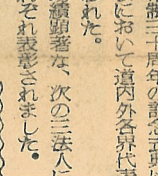 制三十周年の記念式典
において道内外各界代表
われた。
績顕著な、次の三法人に
ぞれ表彰されました。